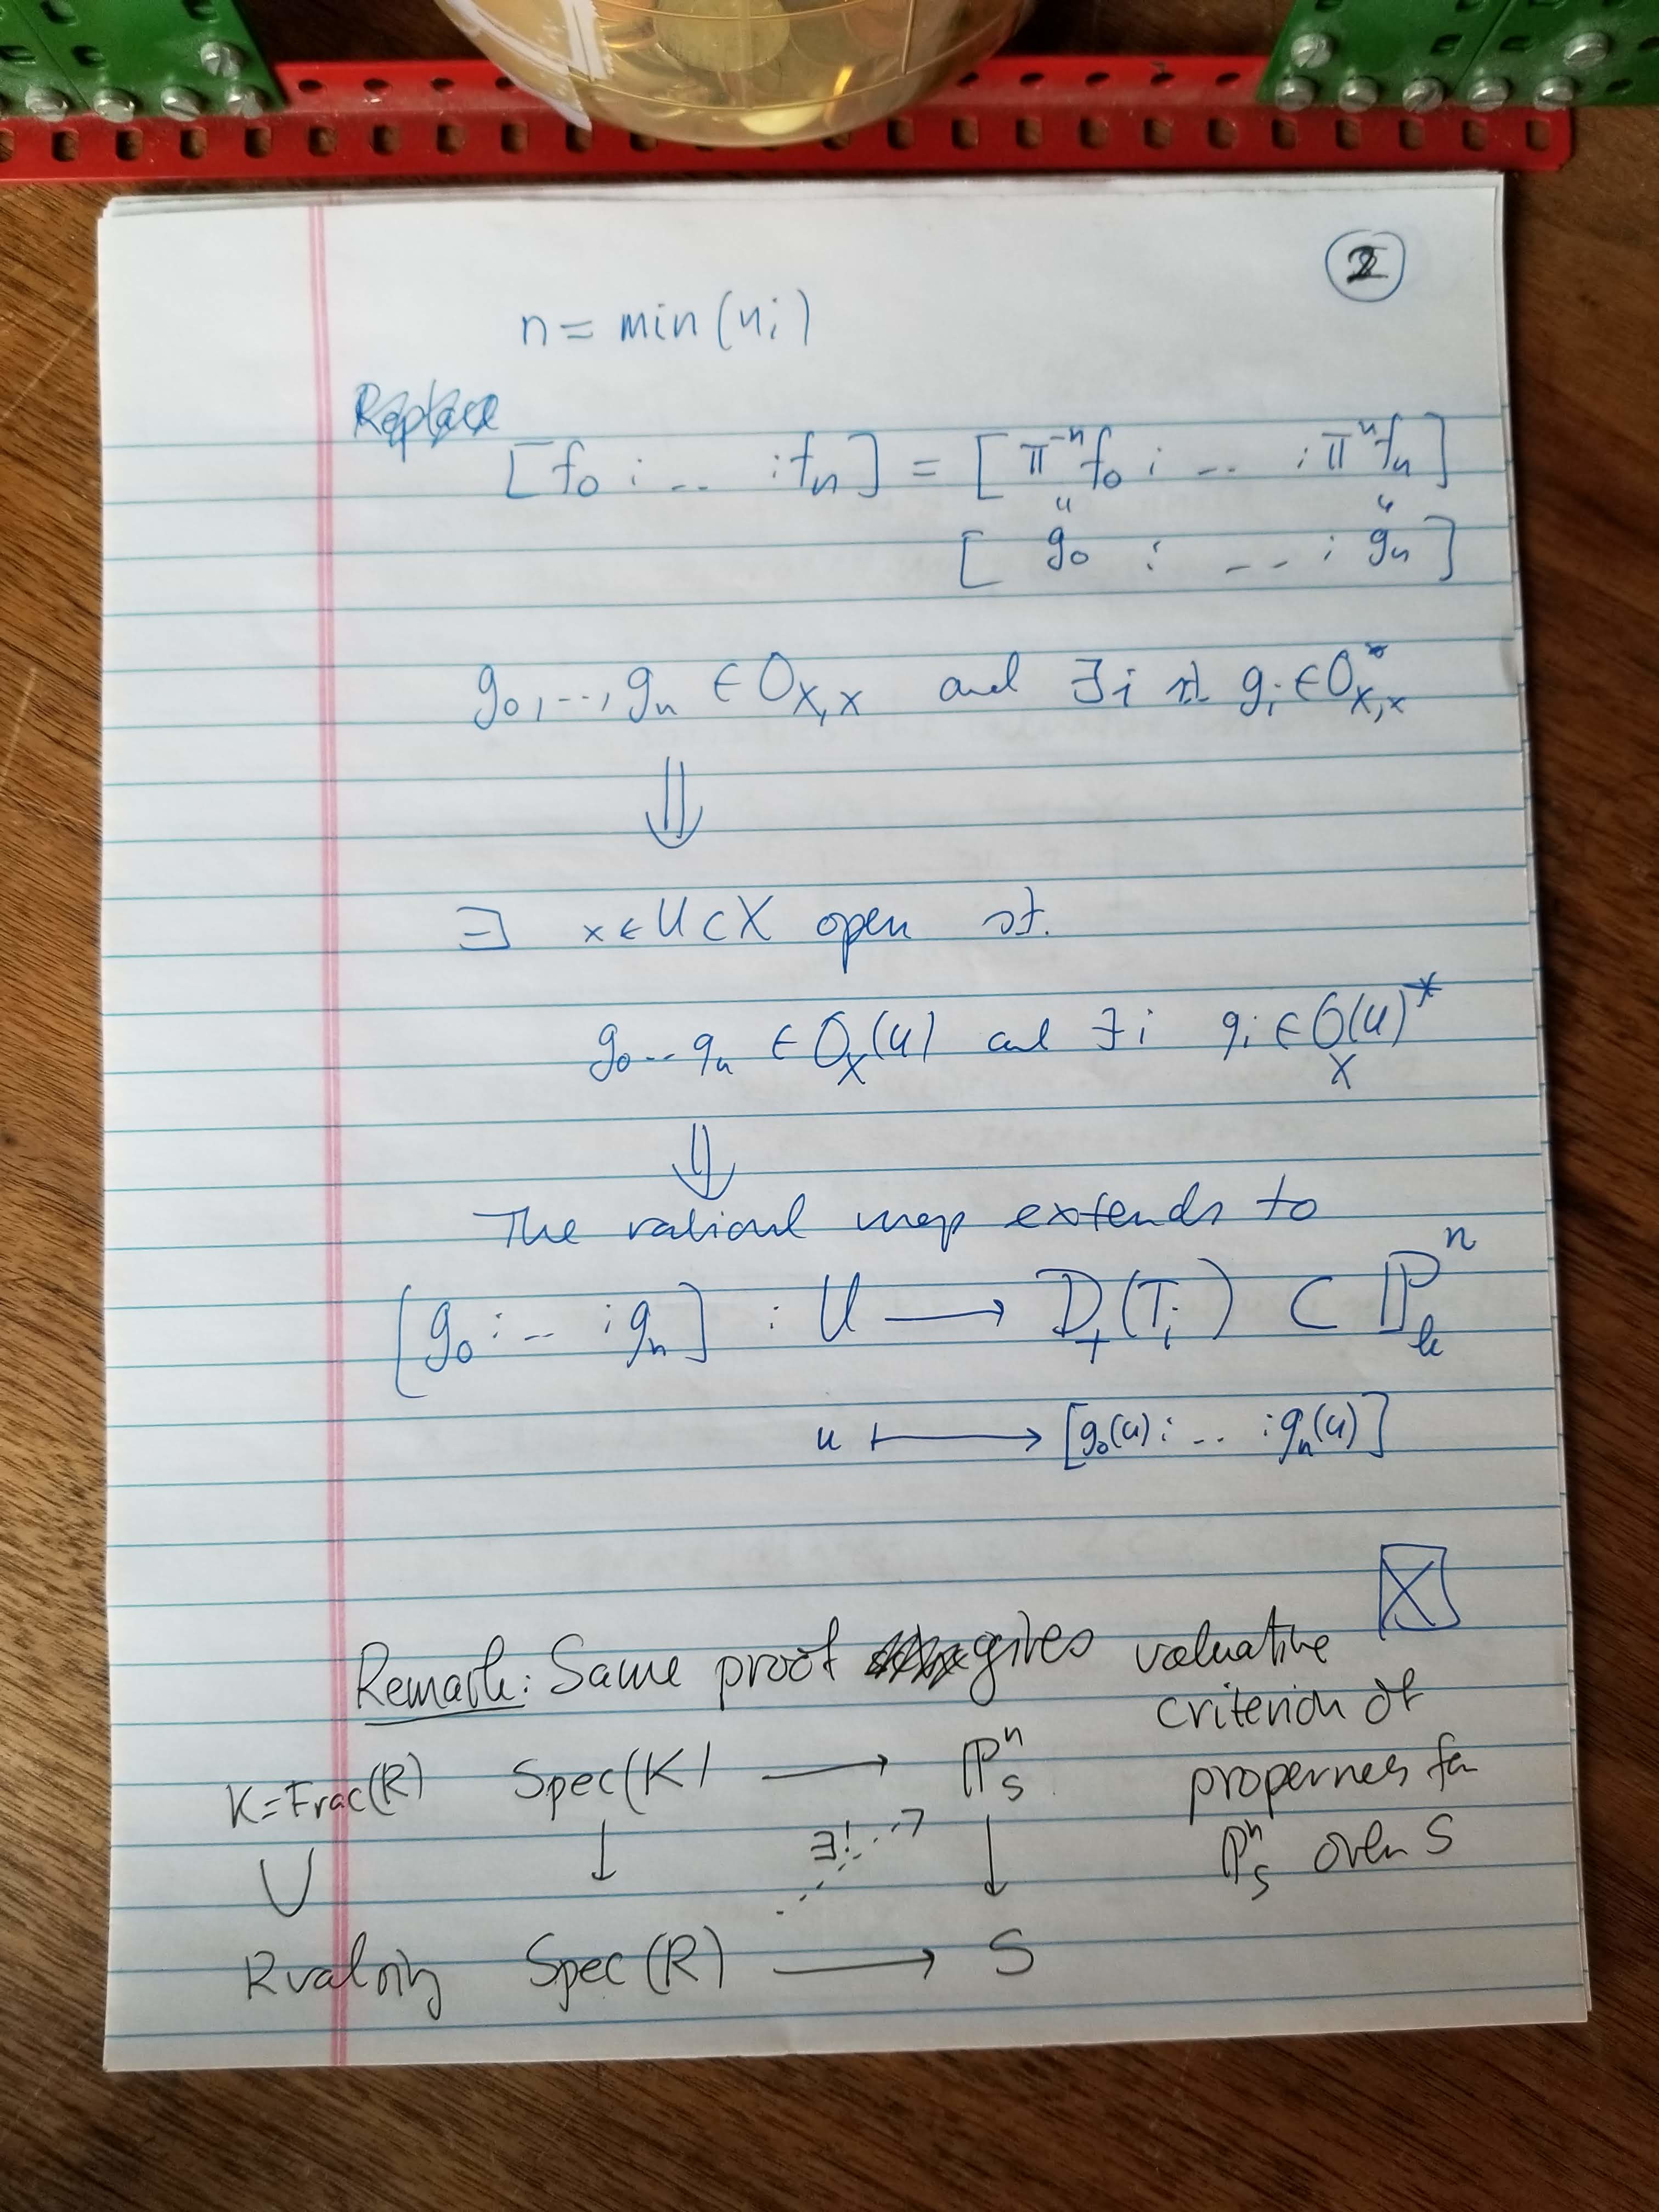 2
n = min(n_i)
[f_0 : .. : f_n] = [π^{-n} f_0 : .. : π^n f_n]
[ g_0 : .. : g_n ]
g_0, ..., g_n ∈ O_{X,x} and ∃ i st g_i ∈ O_{X,x}^*
⇓
∃ x ∈ U ⊂ X open st.
g_0 .. g_n ∈ O_X(U) and ∃ i g_i ∈ O_X(U)^*
⇓
The rational map extends to
[g_0 : .. : g_n] : U ⟶ D_+(T_i) ⊂ ℙ^n_k
u ⟼ [g_0(u) : .. : g_n(u)]
Remark: Same proof gives valuative
criterion of
properness for
ℙ^n_S over S
K = Frac(R) Spec(K) ⟶ ℙ^n_S
∪ ↓ ∃! ↓
R val ring Spec(R) ⟶ S